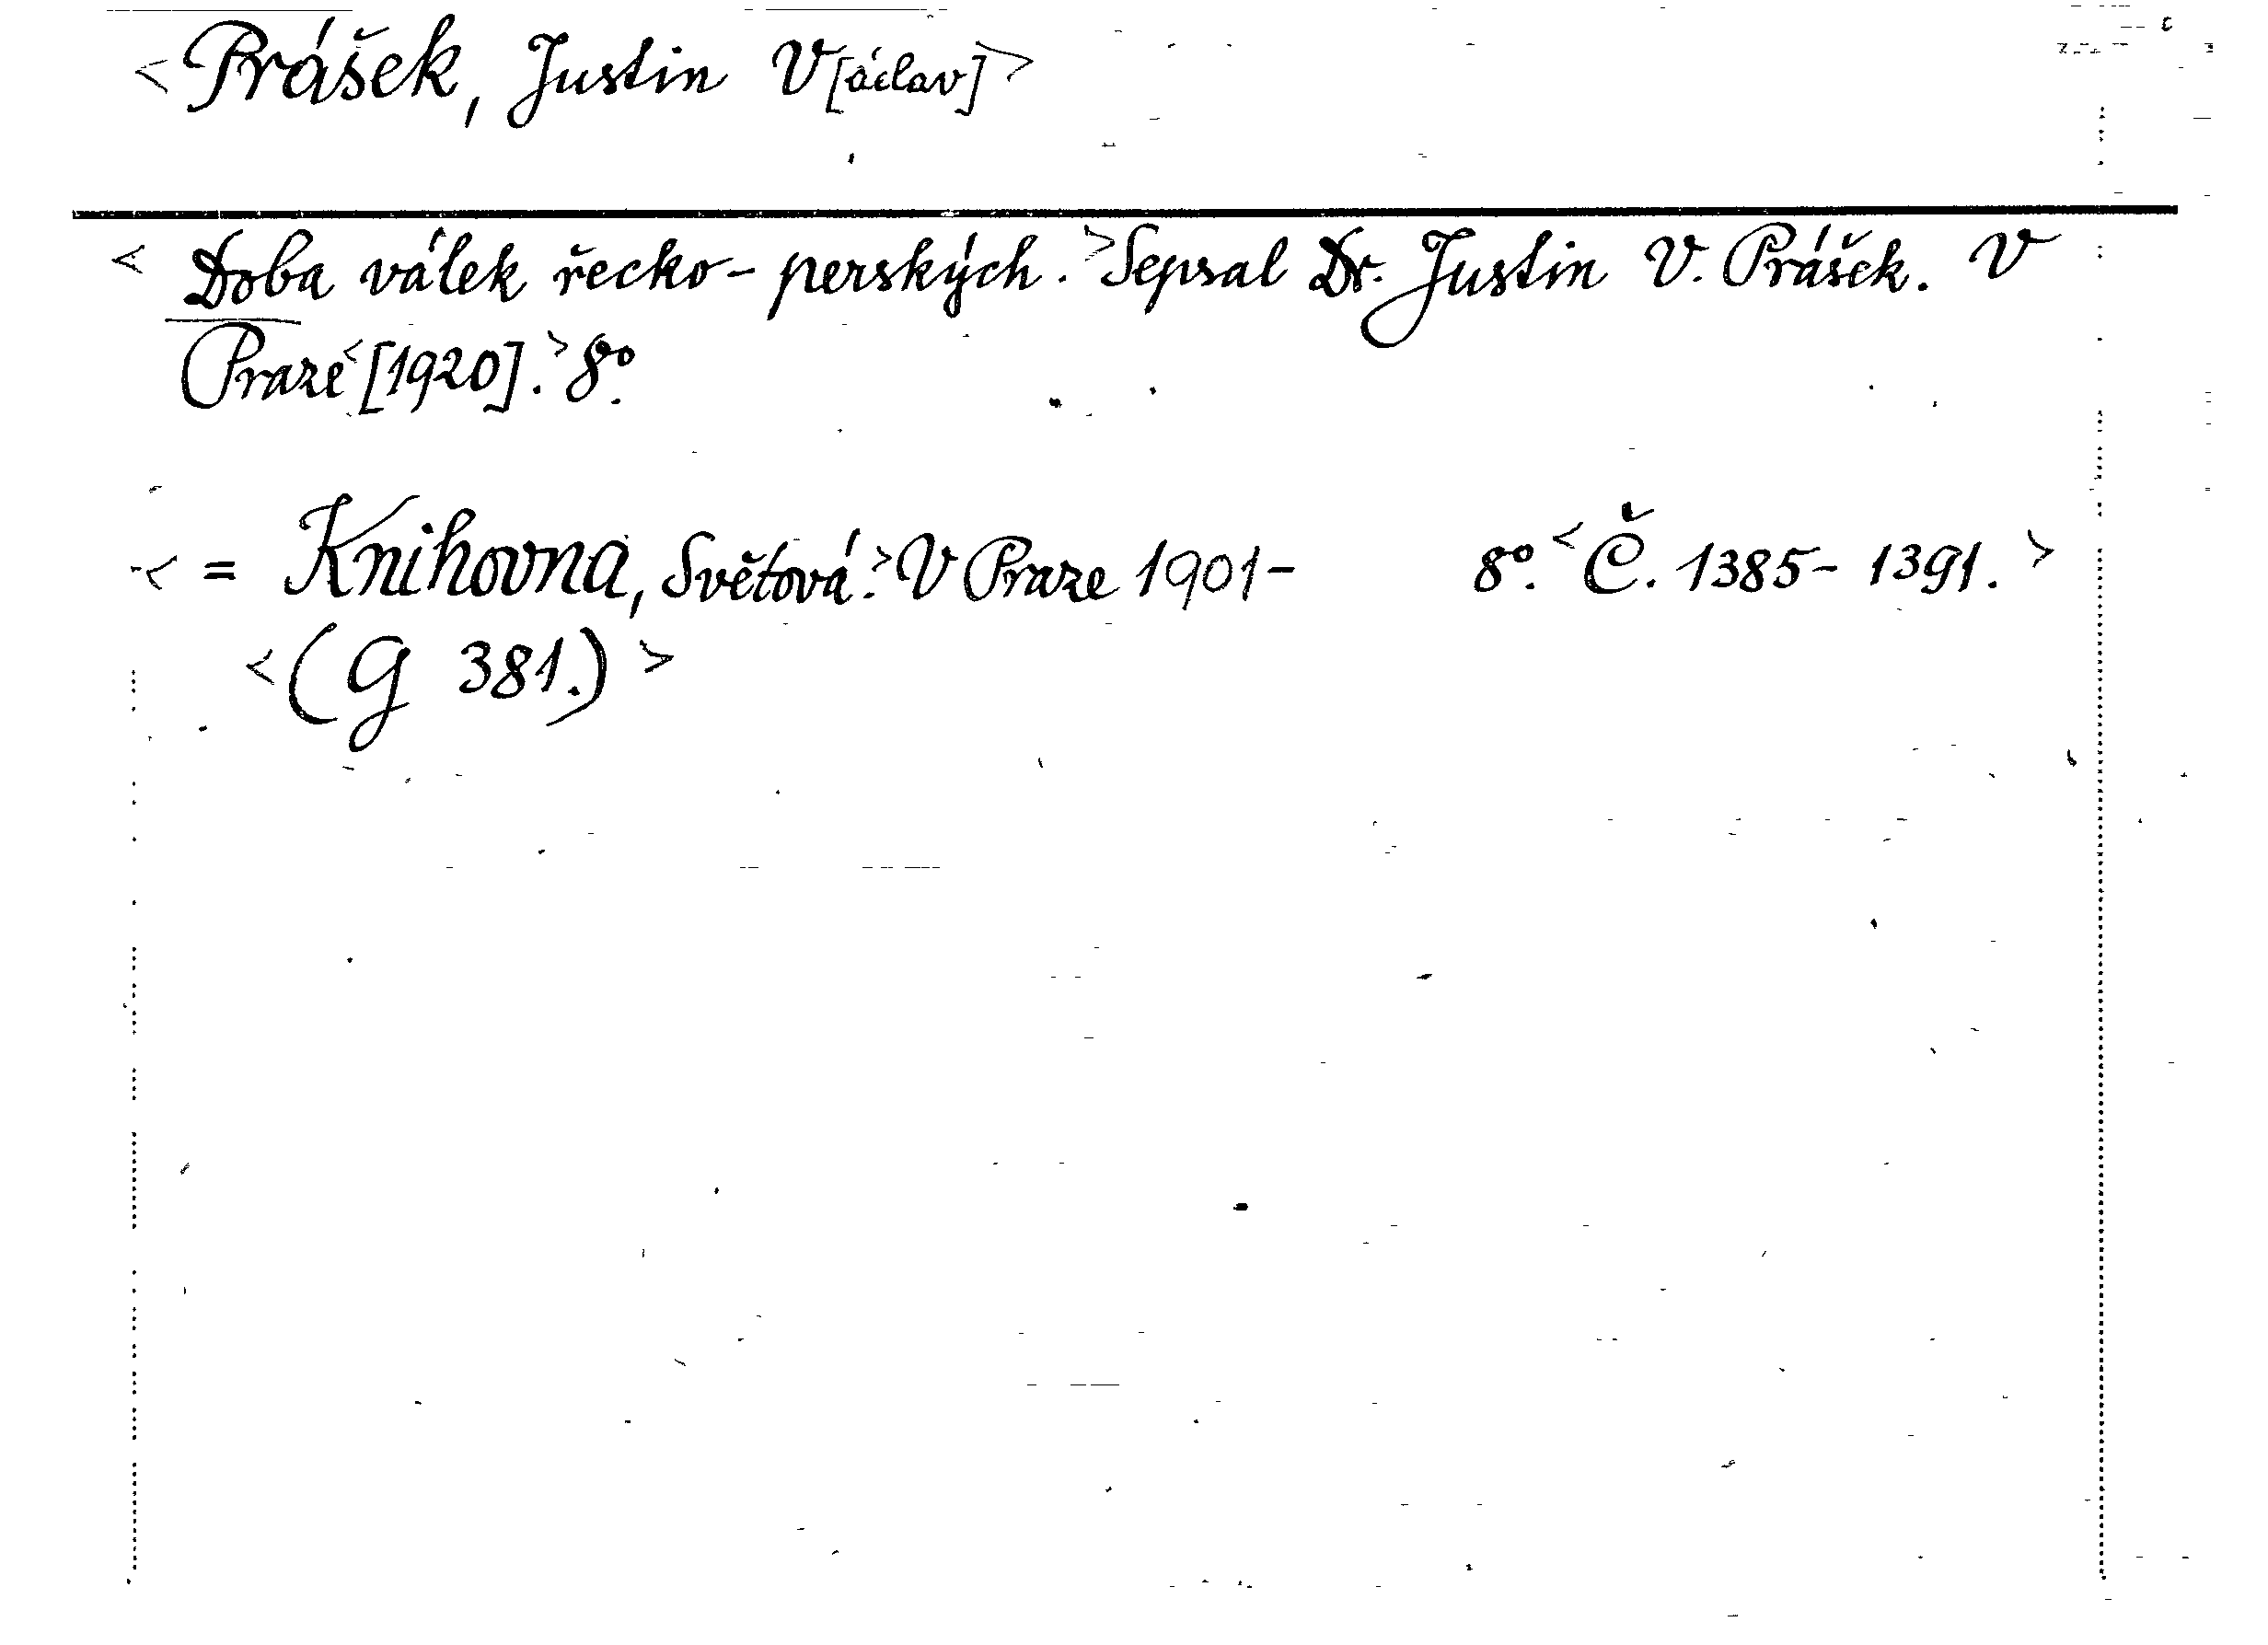 <Prášek, Justin V[áclav]>
< Doba válek řecko-perských.> Sepsal Dr. Justin V. Prášek. V
Praze <[1920].> 8°.
< = Knihovna, Světová.> V Praze 1901- 8°. <Č. 1385-1391.>
<(G 381.)>